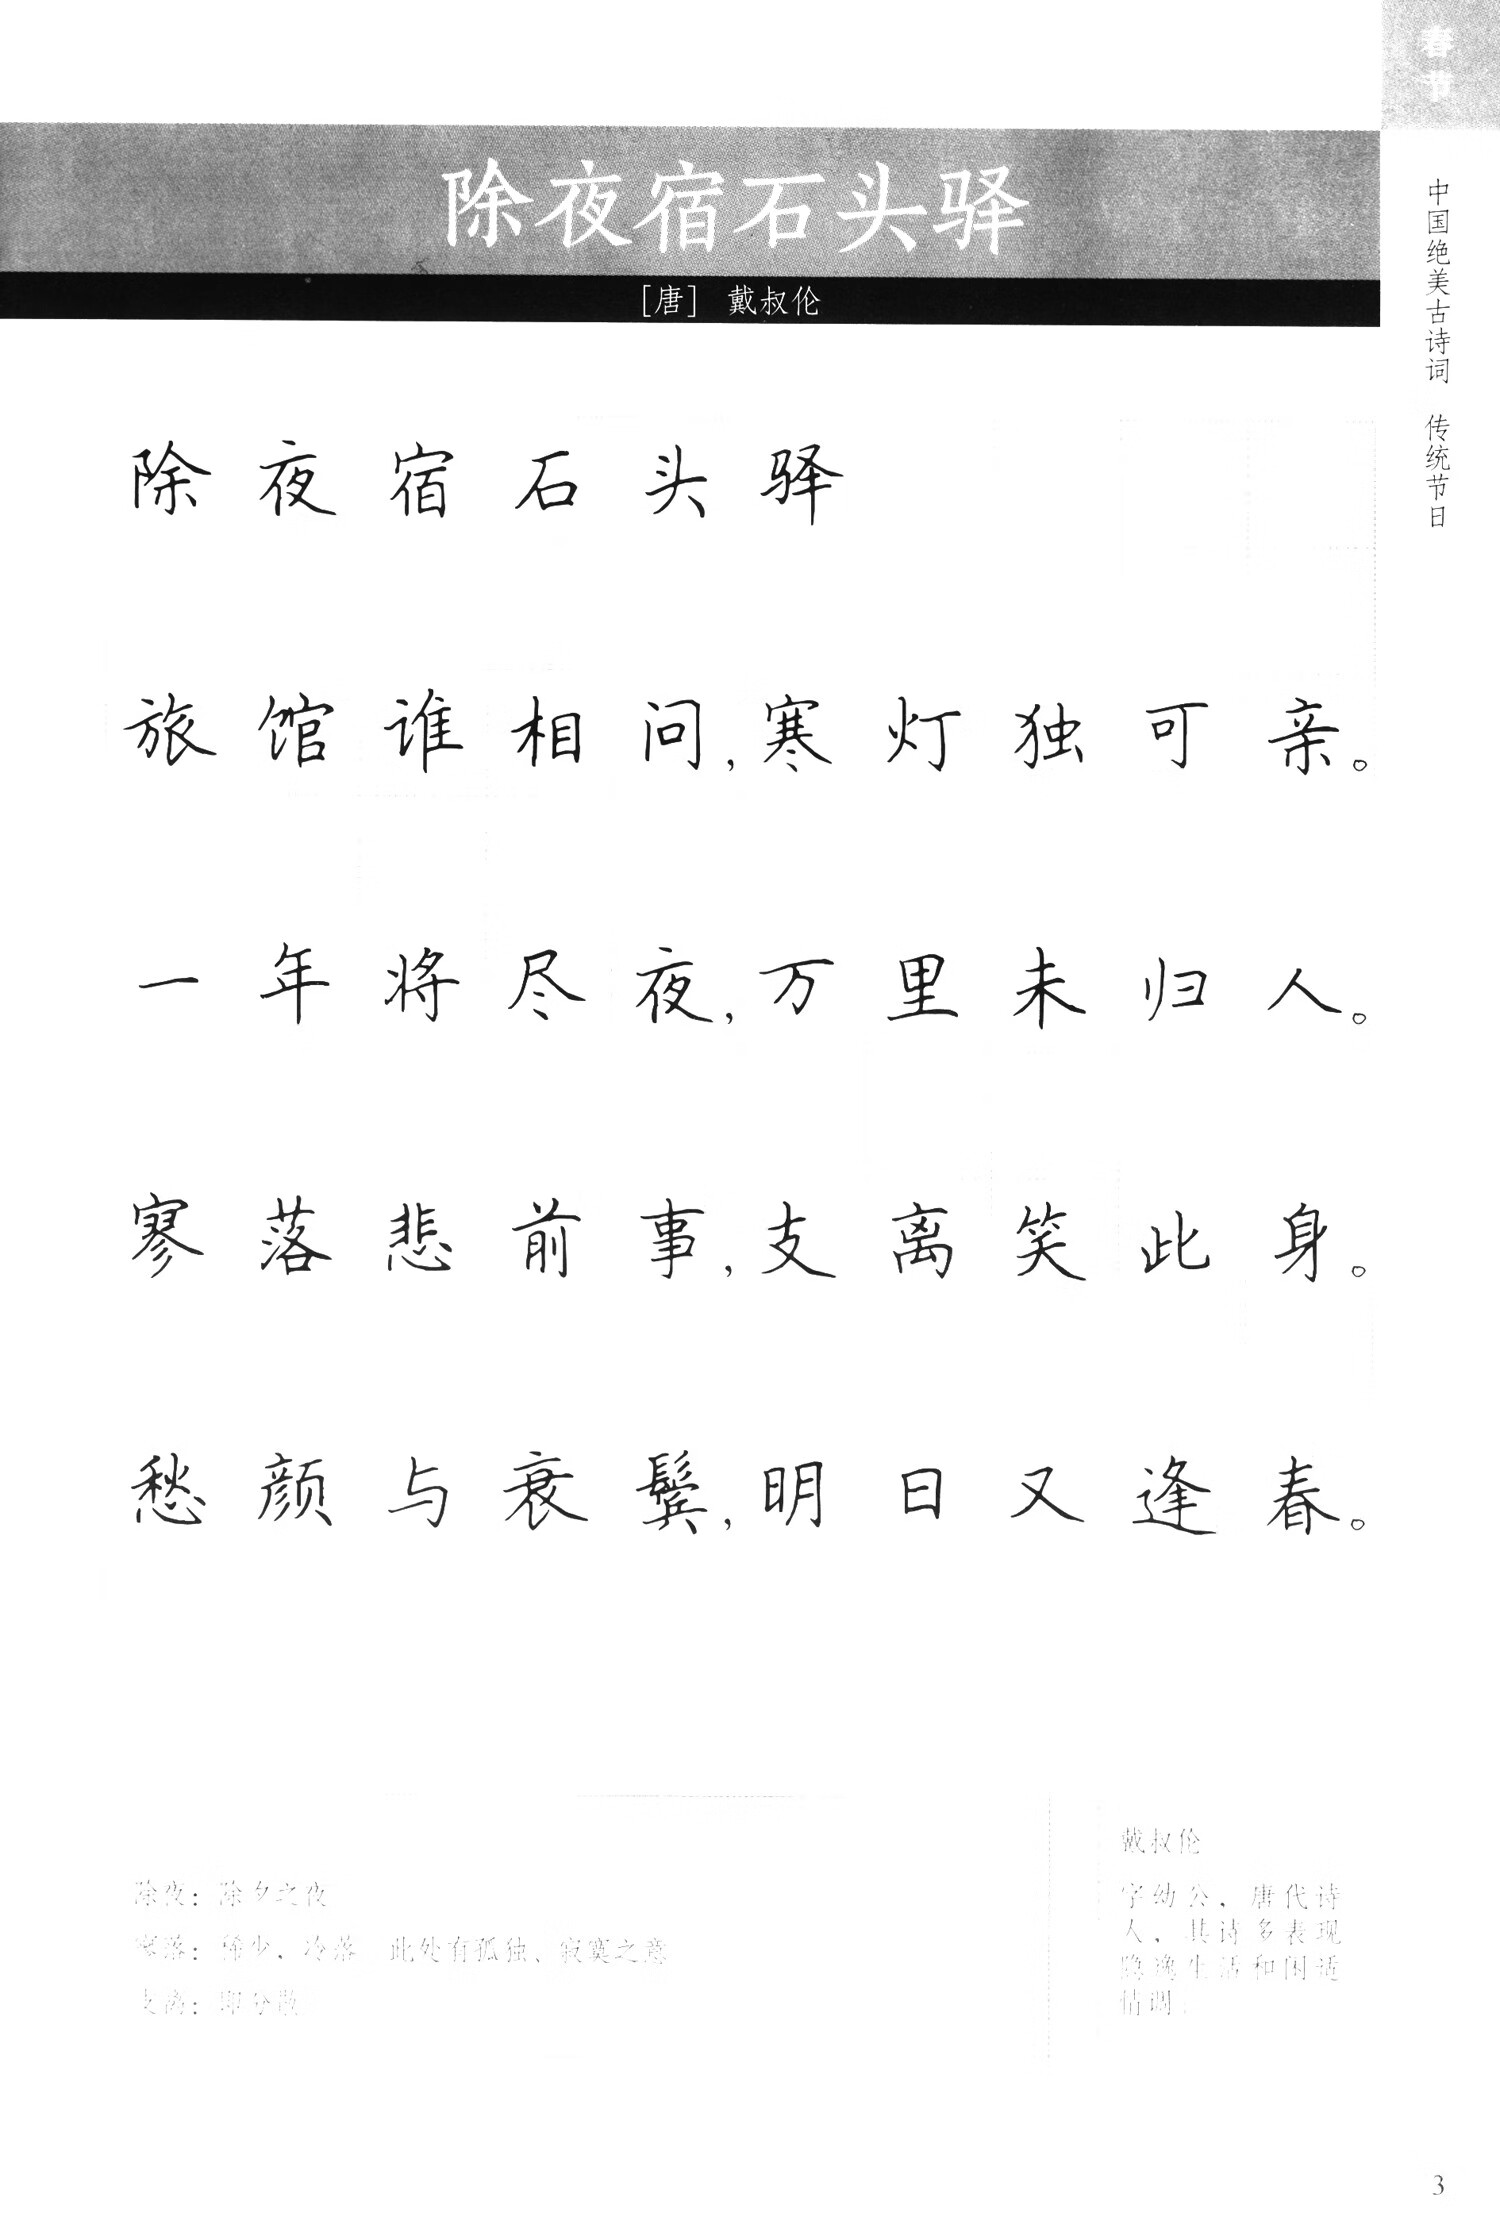 春节
除夜宿石头驿
[唐] 戴叔伦
中国绝美古诗词 传统节日
除夜宿石头驿
旅馆谁相问，寒灯独可亲。
一年将尽夜，万里未归人。
寥落悲前事，支离笑此身。
愁颜与衰鬓，明日又逢春。
除夜：除夕之夜
寥落：稀少、冷落 此处有孤独、寂寞之意
支离：即分散
戴叔伦
字幼公，唐代诗
人，其诗多表现
隐逸生活和闲适
情调
3